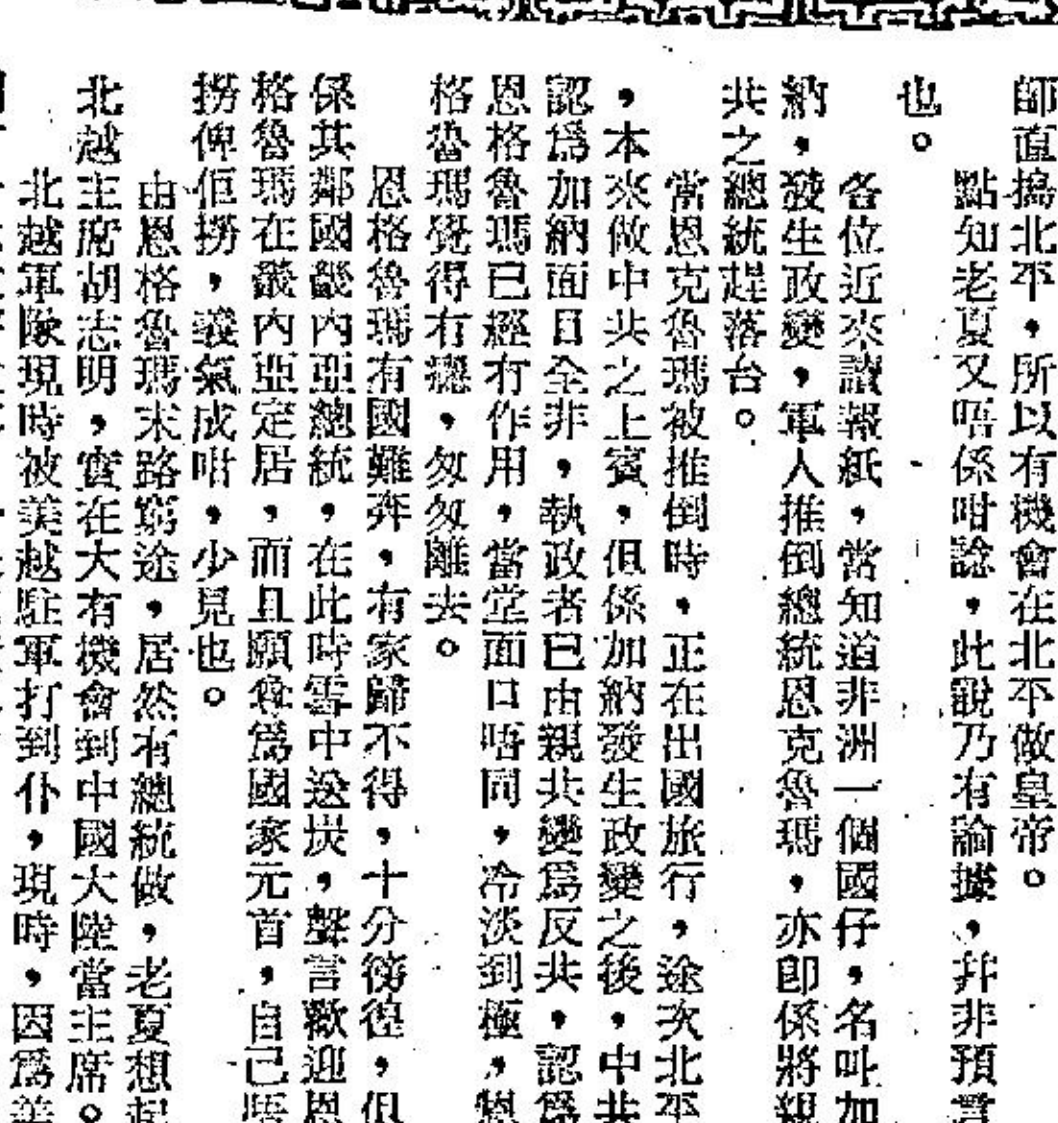 師直搗北平，所以有機會在北平做皇帝。
點知老夏又唔係咁諗，此說乃有論據，幷非預言
也。
各位近來讀報紙，當知道非洲一個國仔，名叫加
納，發生政變，軍人推倒總統恩克魯瑪，亦卽係將親
共之總統趕落台。
當恩克魯瑪被推倒時，正在出國旅行，途次北平
，本來做中共之上賓，但係加納發生政變之後，中共
認爲加納面目全非，執政者已由親共變爲反共，認爲
恩格魯瑪已經冇作用，當堂面口唔同，冷淡到極，恩
格魯瑪覺得冇癮，匆匆離去。
恩格魯瑪有國難奔，有家歸不得，十分徬徨，但
係其鄰國畿內亞總統，在此時雪中送炭，聲言歡迎恩
格魯瑪在畿內亞定居，而且願尊爲國家元首，自己唔
撈俾佢撈，義氣成咁，少見也。
由恩格魯瑪末路窮途，居然有總統做，老夏想起
北越主席胡志明，實在大有機會到中國大陸當主席。
北越軍隊現時被美越駐軍打到仆，現時，因爲美